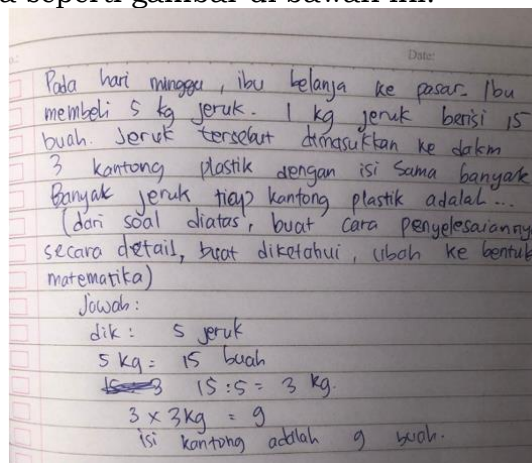 a seperti gambar di bawah ini.
Date:
Pada hari minggu, ibu belanja ke pasar. Ibu
membeli 5 kg jeruk. 1 kg jeruk berisi 15
buah. Jeruk tersebut dimasukkan ke dakm
3 kantong plastik dengan isi sama banyak
Banyak jeruk tiap kantong plastik adalah...
(dari soal diatas, buat cara penyelesaianny
secara detail, buat diketahui, ubah ke bentuk
matematika)
Jawab:
dik : 5 jeruk
5 kg = 15 buah
15 : 5 = 3 kg.
3 x 3kg = 9
isi kantong adalah 9 buah.